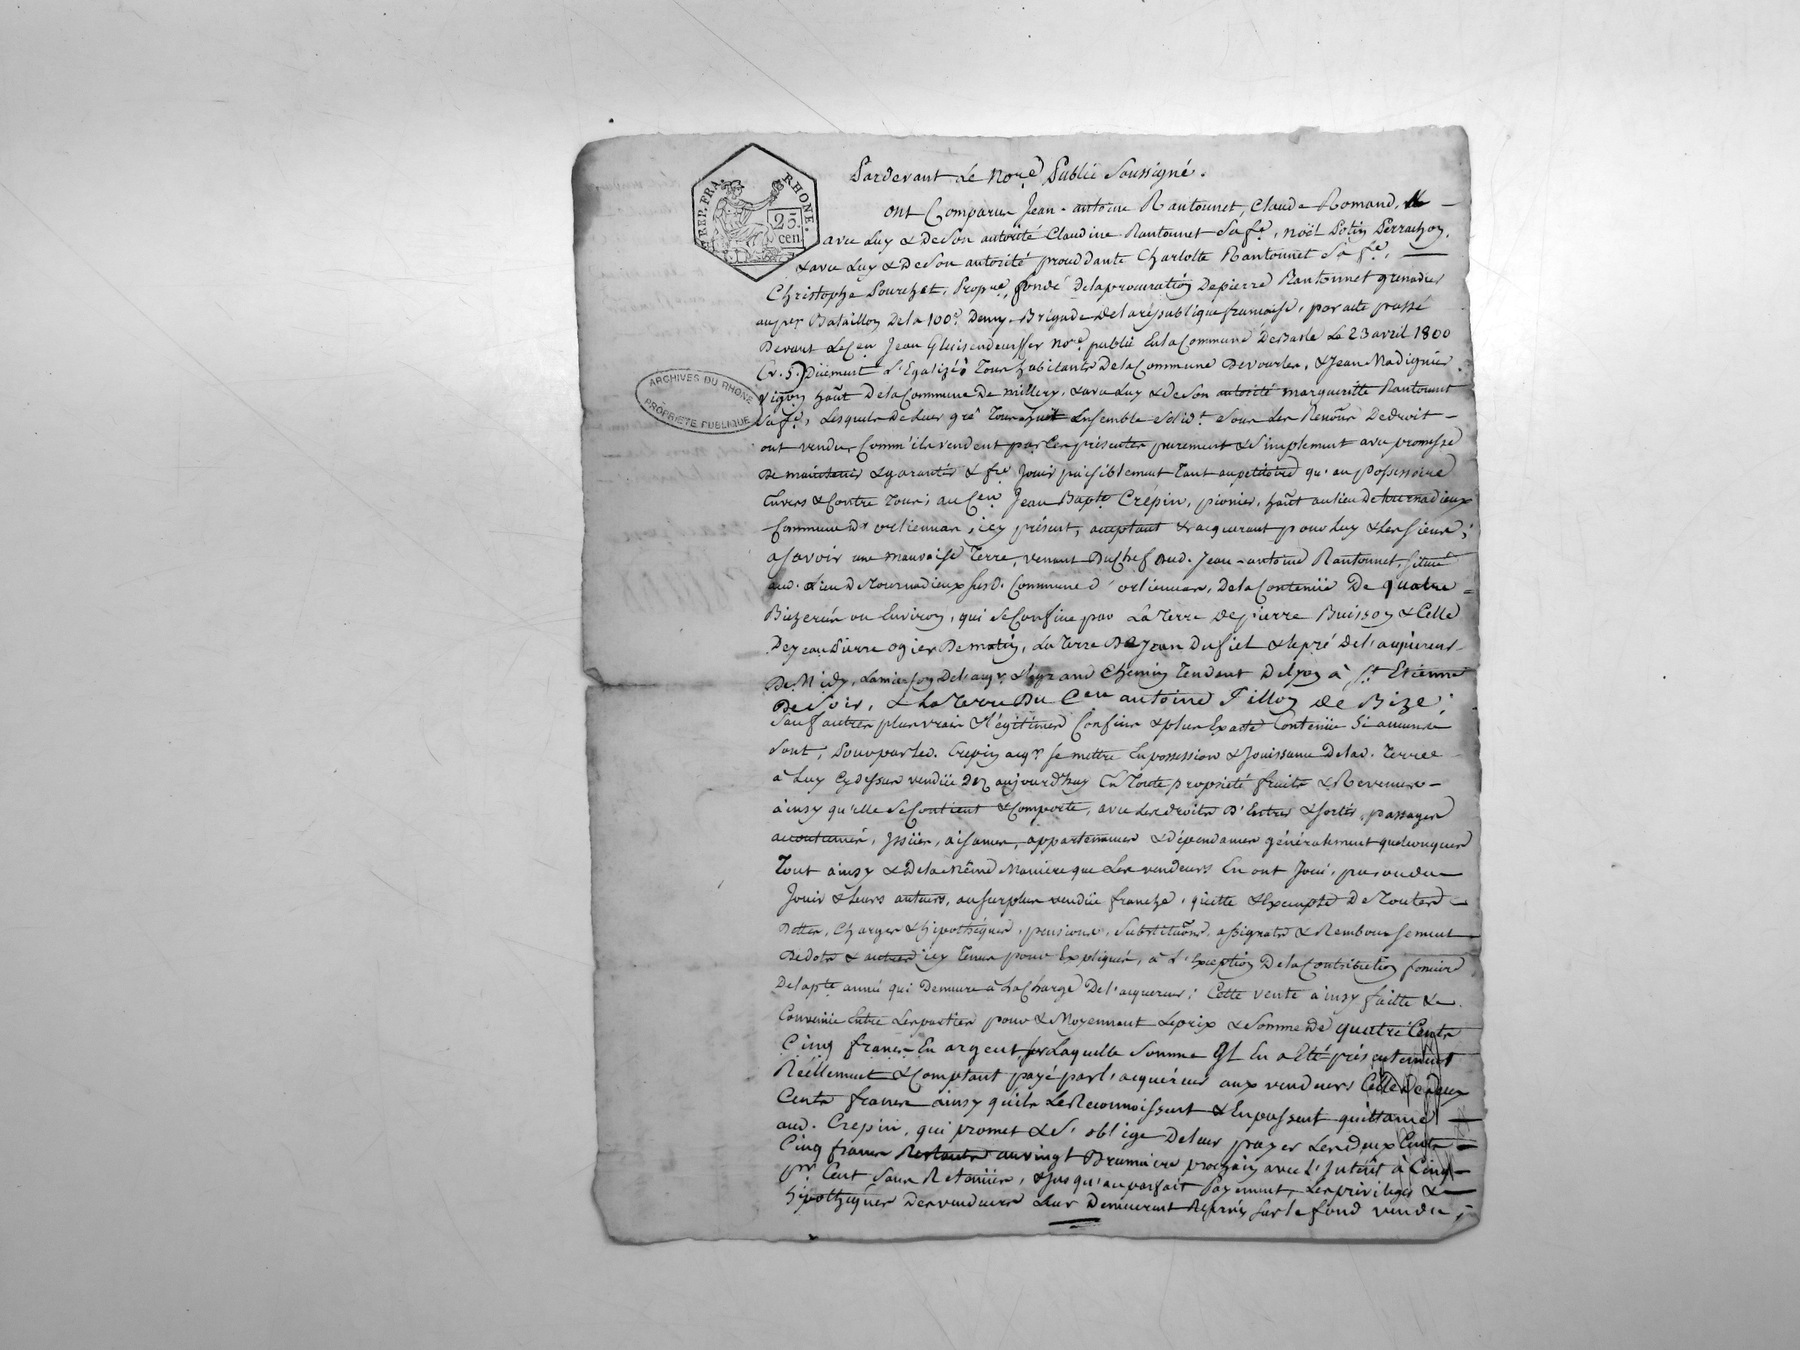 REP. FRA. RHONE.
25 cen
ARCHIVES DU RHONE
PROPRIETE PUBLIQUE
Pardevant Le No.re Public Soussigné.
ont Comparus Jean-antoine Rantonnet, Claude Romand, &
avec Luy & De Son autorité Claudine Rantonnet Sa fe, noël Perrachon,
& avec Luy & De Son autorité proceddante Charlotte Rantonnet Sa fe,
Christophe Pourchet, Propre, fondé de la procuration De pierre Rantonnet grenadier
au per Bataillon De la 100e Demy-Brigade de la république francaise, par acte passé
Devant Le Cen Jean no.re public En la Commune De Basle Le 23 avril 1800
(v. s.) Düement L'Egalizé Tous habitants De la Commune De vourles, & Jean Madignier
vigon haûtt De la Commune De millery, & avec Luy & De Son autorité margueritte Rantonnet
Sa fe, Lesquels De Leur gré Tous huit Ensemble Solidt Sous Les Renôns De droit
ont vendu Comm'ils vendent par Ces présentes purement & Simplement avec promesse
De maintenir & garantir & fre Jouir paisiblement Tant au petitoire qu'au possessoire
Envers & Contre Tous, au Cen Jean Bapte Crépin, pionier, haûtt au lieu De tournadieux
Commune D'orlienas, icy présent, acceptant & acquerant pour Luy & Les Siens;
a Savoir une mauvaise Terre, venant Du Chef Dud. Jean-antoine Rantonnet, Situé
aud. Lieu De Tournadieux Susd. Commune d'orlienas, De la Contenüe De quatre
Bicherées ou Environ, qui Se Confine par La Terre De pierre Buisson & Celle
De Jean Pierre ogier De matin, La Terre De Jean Dufiel & le pré De l'acquéreur
De Midy, La maison De l'acqr & le grand Chemin Tendant De Lyon à St Etienne
De Soir, & La Terre Du Cen antoine Fillon De Bize;
Sauf autres plus vrais & légitimes Confins & plus Exacte Contenüe Si aucuns
Sont, pour par Led. Crepin acqr Se mettre En possession & Jouissance De lad. Terre
à Luy Cy dessus vendüe Dez aujourd'huy En Toute propriété fruits & Revenus
ainsy qu'elle Se Contient & Comporte, avec Les droits D'Entrer & Sortir, passages
accoutumés, Issües, aisances, appartenances & dépendances généralement quelconques
Tout ainsy & De la Même Maniere que Les vendeurs En ont Joui, pu ou du
Jouir & Leurs auteurs, au Surplus vendüe franche, quitte & Exempte De Toutes
Dettes, Charges & hipothéques, pensions, Substitutions, assignats & Remboursement
De dots & autres icy Tenus pour Expliqués, à L'Exception De la Contribution fonciere
De la pte année qui Demeure à La Charge De l'acquereur; Cette vente ainsy faitte &
Convenüe Entre Les parties pour & Moyennant Le prix & Somme De quatre Cents
Cinq francs En argent, Sur Laquelle Somme Il En a Eté présentement
Réellement & Comptant payé par l'acquéreur aux vendeurs Celle De deux
Cents francs ainsy qu'ils Le Reconnoissent & En passent quittance
aud. Crepin, qui promet & S'oblige De leur payer Les deux Cents
Cinq francs Restants au vingt Brumaire prochain avec L'Intérêt à Cinq
pr Cent Sans Retenüe, & Jusqu'au parfait Payement, Les privileges &
hipothéques Des vendeurs Leur Demeurent Réservés Sur le fond vendu;